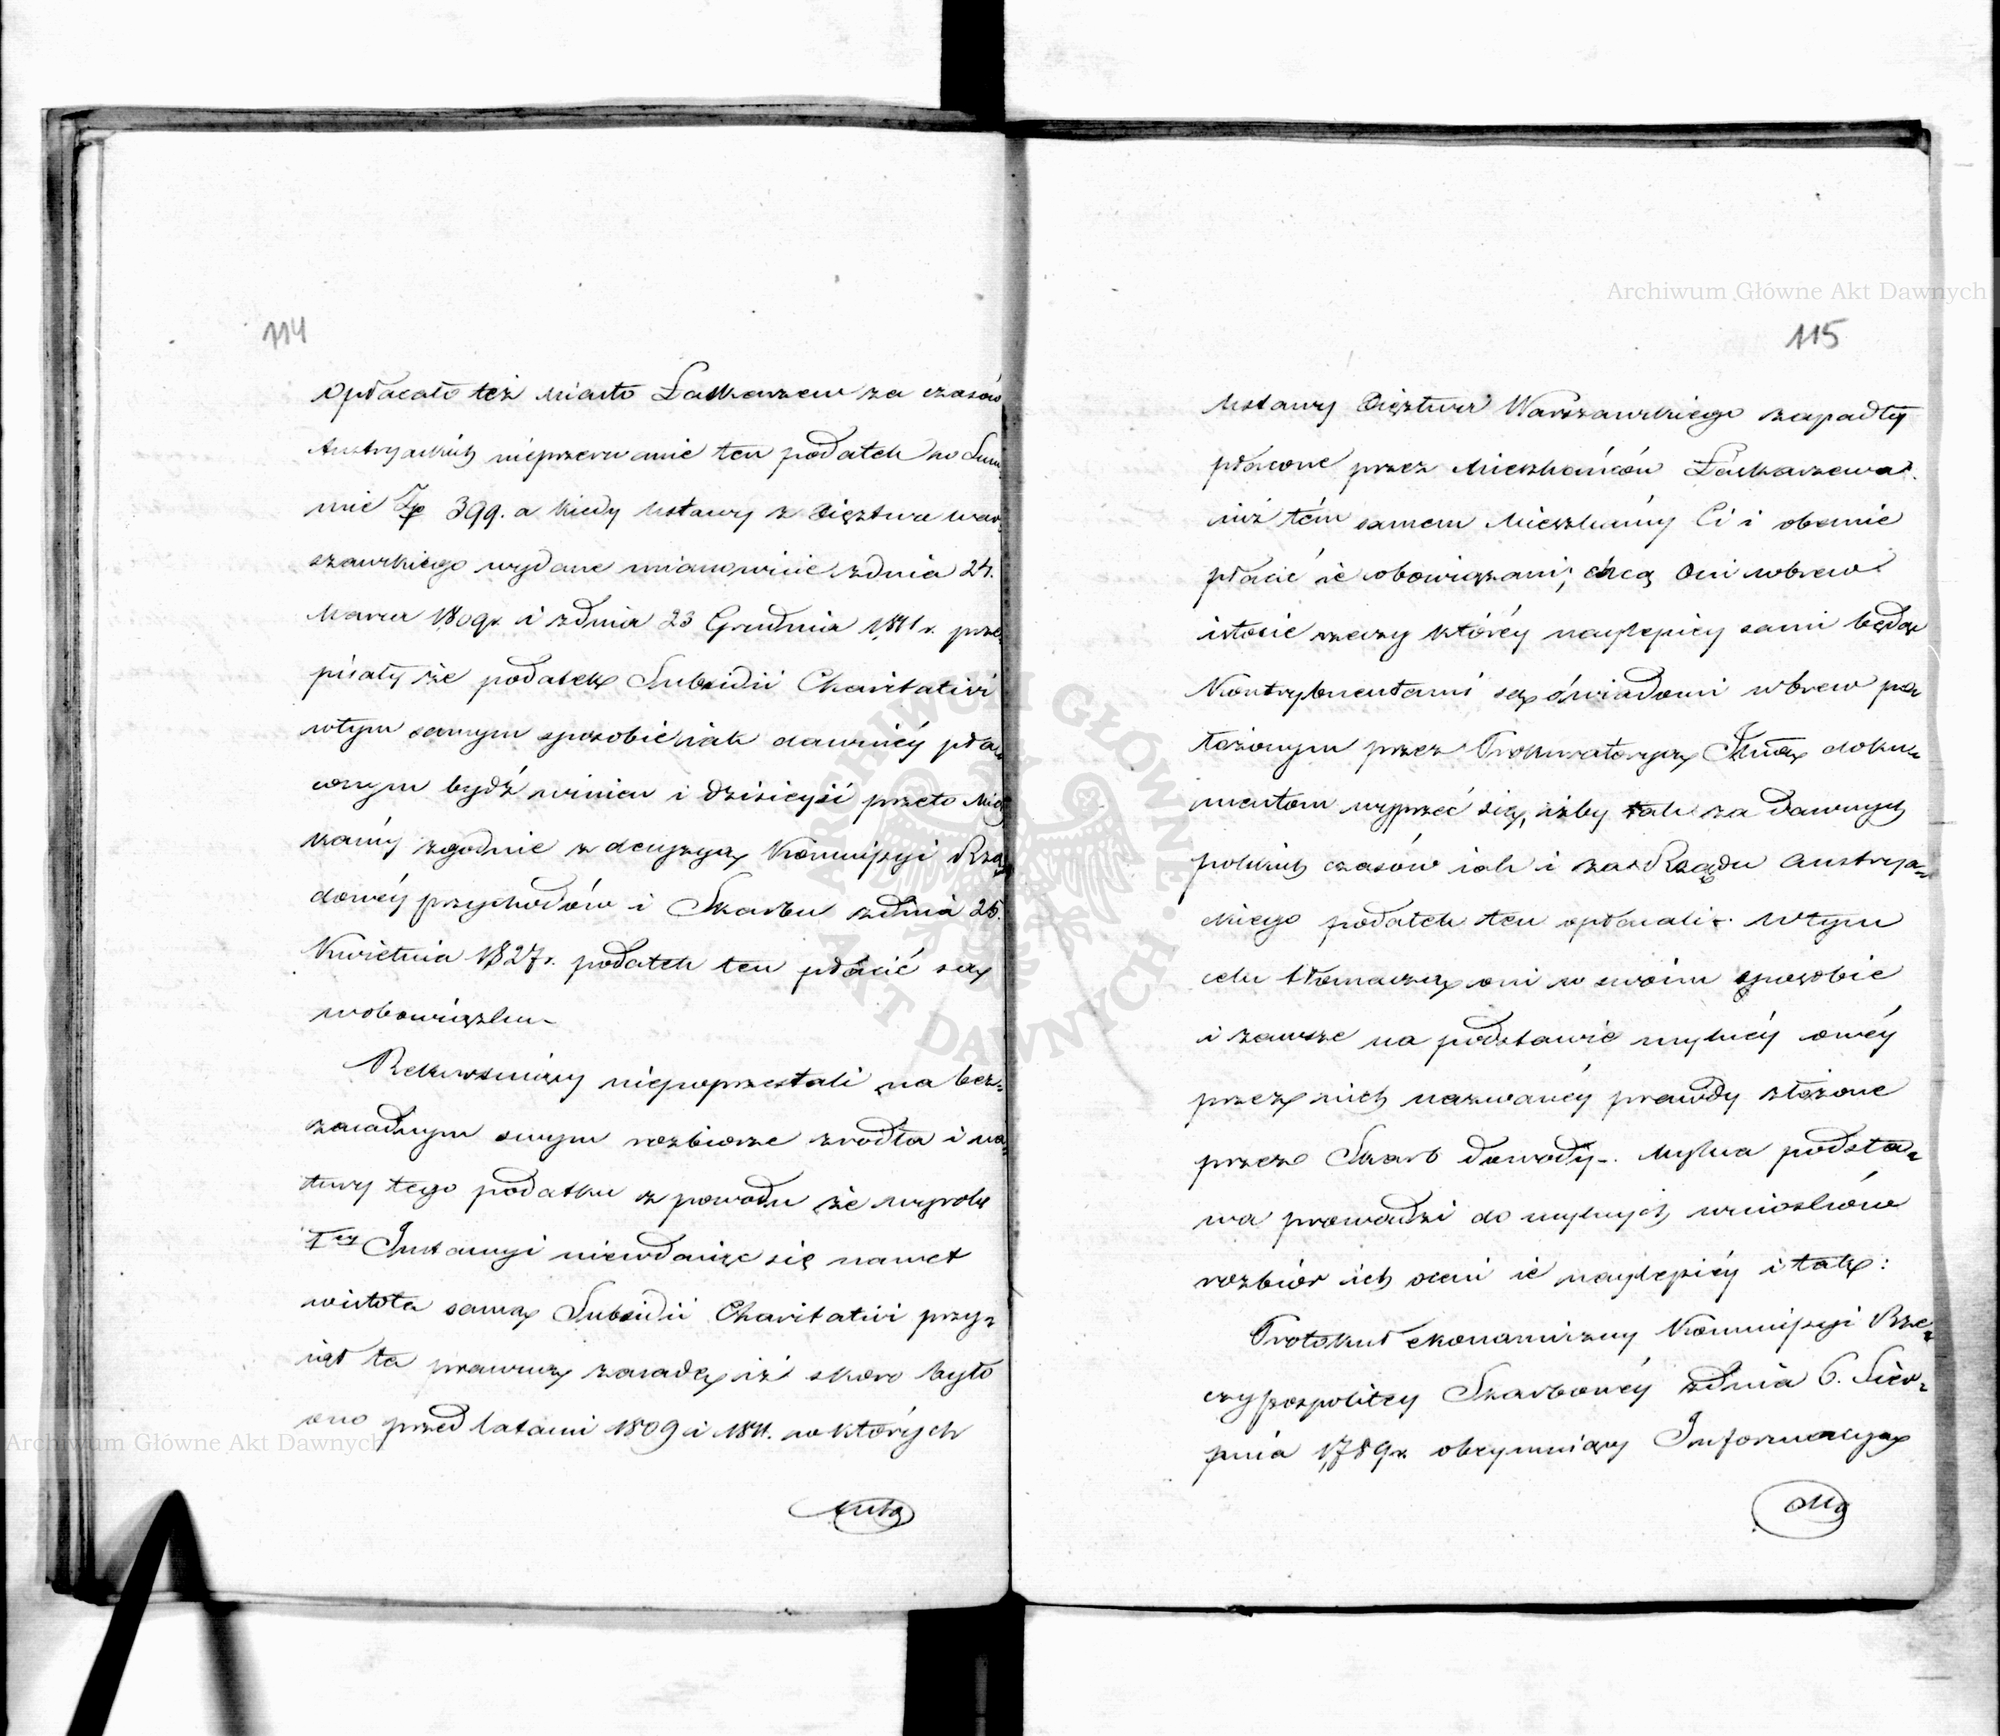 114
Opłacało też Miasto Łaskarzew za czasów
Austryackich nieprzerwanie ten podatek w Sum-
mie Zp 399. a kiedy Ustawy z Xięztwa War-
szawskiego wydane mianowicie z dnia 24.
Marca 1809 r. i z dnia 23 Grudnia 1811 r. prze-
pisały że podatek Subsidii Charitativi
w tym samym sposobie iak dawniéy pła-
conym bydź winien i dzisieyśi przeto Miesz-
kańcy zgodnie z decyzyą Kommissyi Rzą-
dowéy Przychodów i Skarbu z dnia 25.
Kwietnia 1827 r. podatek ten płacić są
w obowiązku.
Rekursuiący niepoprzestali na bez-
zasadnym swym rozbiorze zrodła i na-
tury tego podatku z powodu że wyrok
Iey Instancyi niewdaiąc się nawet
w istotę samą Subsidii Charitativi przy-
iął tę prawną zasadę iż skoro było
ono przed latami 1809 i 1811. w których
Usta
115
Ustawy Xięztwa Warszawskiego zapadły
płacone przez Mieszkańców Łaskarzewa.
iuż tém samem Mieszkańcy Ci i obecnie
płacić ie obowiązani; chcą Oni wbrew
istocie rzeczy któréy naylepiéy sami będąc
Kontrybuentami są świadomi wbrew po
łożonym przez Prokuratoryą Jlną doku-
mentom wyprzeć się, iżby tak za dawnych
polskich czasów iak i za Rządu Austrya-
ckiego podatek ten opłacali. W tym
celu tłomaczą oni w swoim sposobie
i zawsze na podstawie mylnéy owéy
przez nich nazwanéy prawdy złożone
przez Skarb dowody. Mylna podsta-
wa prowadzi do mylnych wniosków
rozbiór ich oceni ie naylepiéy i tak:
Protokuł ekonomiczny Kommissyi Rze-
czypospolitey Skarbowéy z dnia 6. Sier-
pnia 1789 r. obeymuiący Informacyą